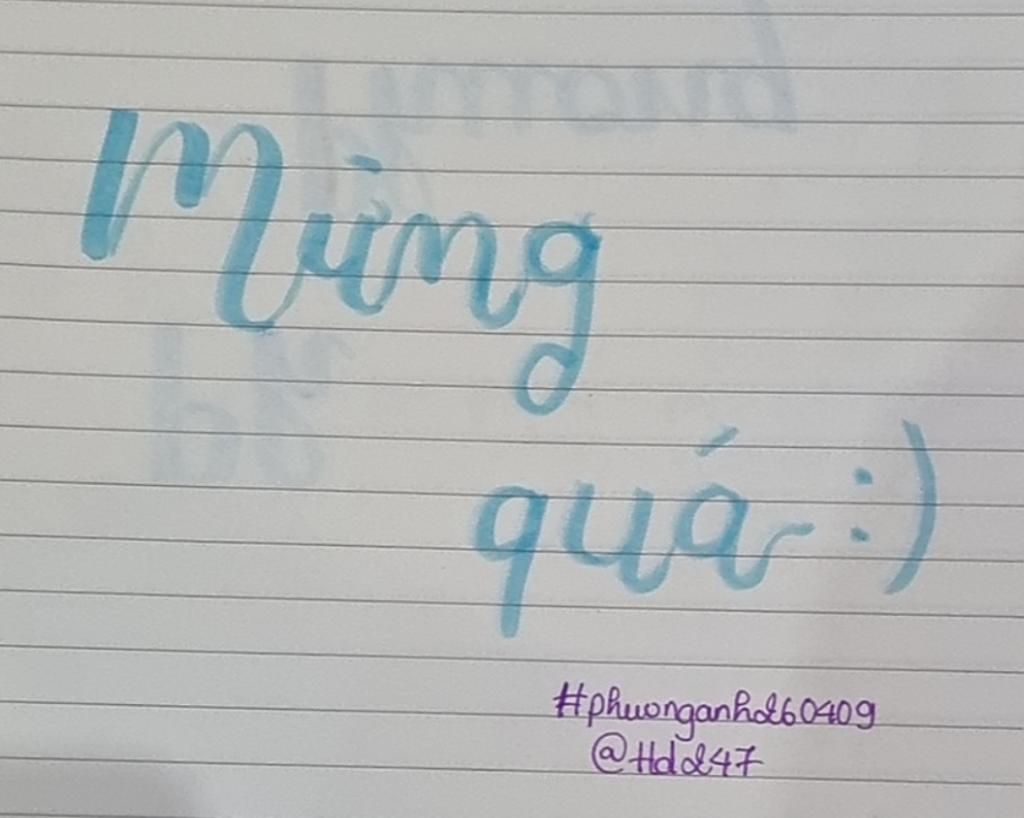 Mừng
quá :)
#phuonganhd260409
@Hdd47